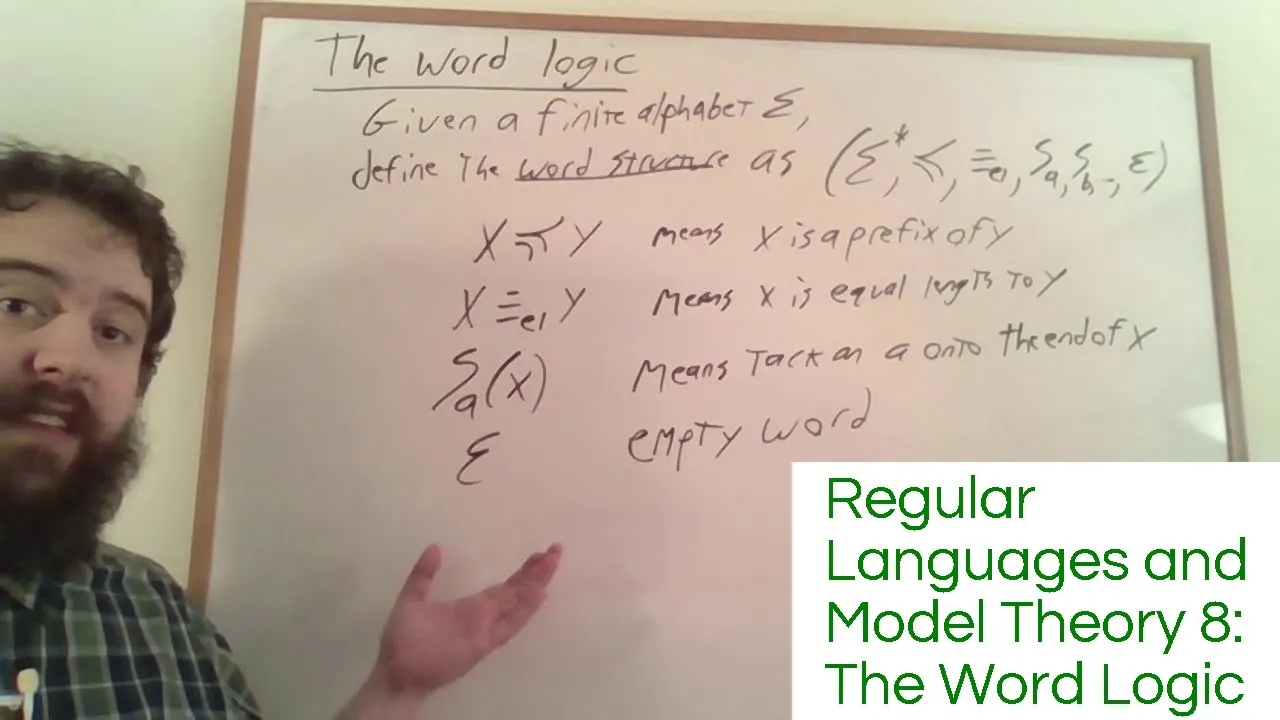 The word logic
Given a finite alphabet Σ,
define the word structure as (Σ*, ≼, ≡el, Sa, Sb, ..., ε)
X ≼ Y means X is a prefix of y
X ≡el Y means x is equal length to y
Sa(x) means tack an a onto the end of x
ε empty word
Regular
Languages and
Model Theory 8:
The Word Logic